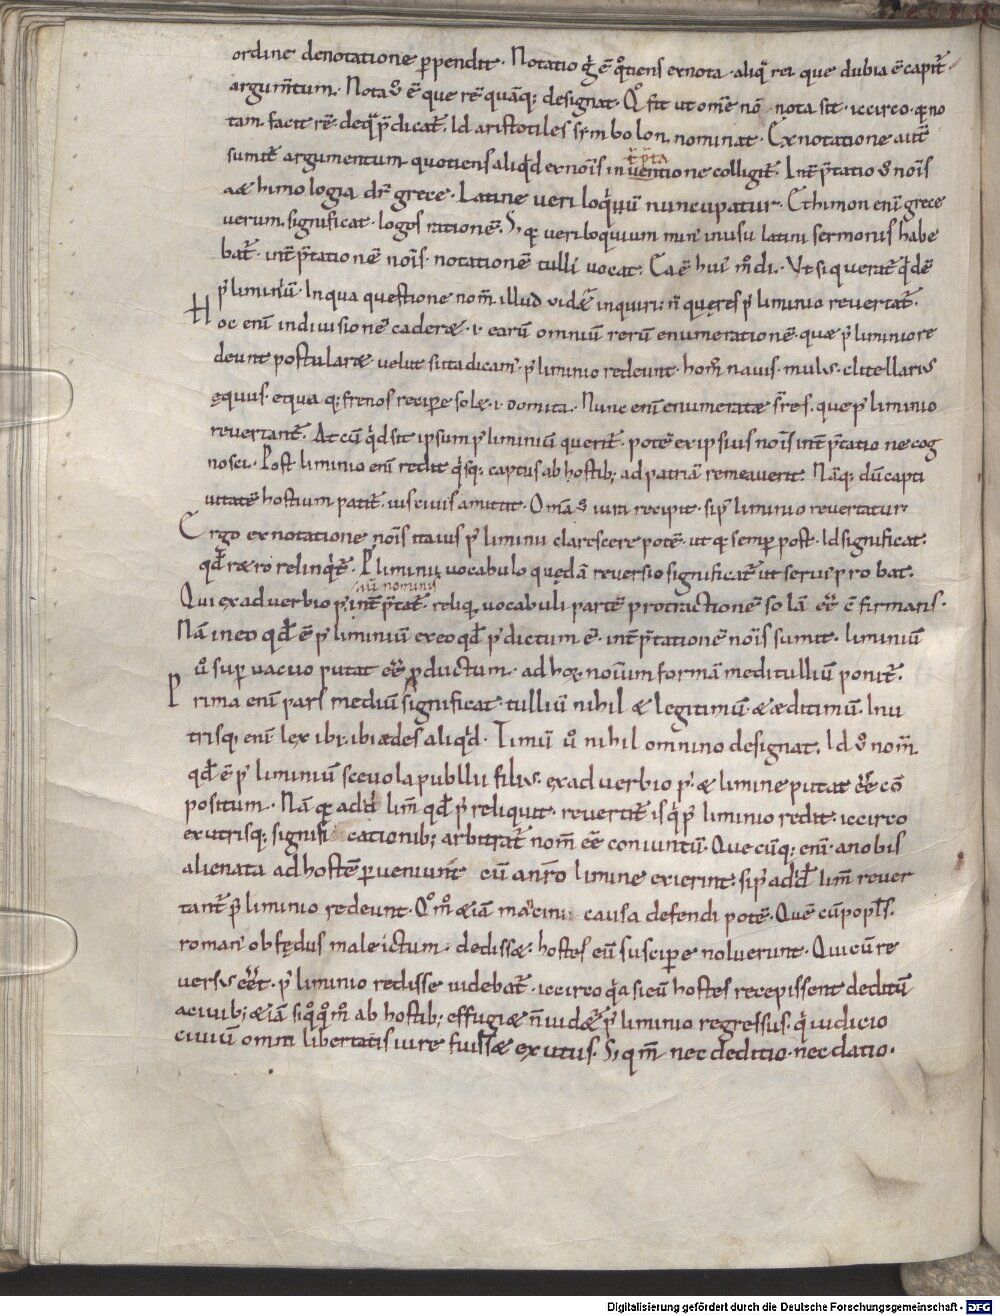 ordine denotatione ꝑpendit. Notatio g̃ ẽ q̊tiens exnota aliq̃ rei que dubia ẽ capit̃
argum̃tum. Nota ů ẽ que rẽ quãq; designat. Qͦ fit ut om̃e nõ nota sit. iccirco. qͥ no
tam facit rẽ deq̃ p̃dicat̃. Id aristotiles sẏmbolon nominat. Ex notatione autẽ
sumit̃ argumentum quotiens aliqͥd exnoĩs inuentione colligit̃. Int̃p̃tatio ů noĩs
aethimologia dr̃ grece. Latine ueriloqͥũ nuncupatur. Ethimon enĩ grece
uerum significat. logos rationẽ. S; qͥ ueriloquium min' inusu latini sermonis habe
bat̃. int̃p̃tationẽ noĩs notationẽ tulli' uocat. Ca ẽ hui' m̊di. Vt si querat̃ qͥd ẽ
p' liminiũ. In qua questione nom̃ illud uidẽt inquiri. ñ quẹ res p' liminio reuertat̃.
Hoc enĩ indiuisionẽ caderæ .i. earũ omniũ rerũ enumerationẽ. quae p' liminio re
deunt postularæ. uelut si ita dicam'. p' liminio redeunt. hom̃. nauis. mulus. clitellarius
ẹquus. et qua q; frenos recipe solæ .i. domita. Nunc enĩ enumeratae s̃ res. que p' liminio
reuertant̃. At cũ qͥd sit ipsum p' liminiũ querit̃. potẽ ex ipsius noĩs int̃p̃tatio ne cog
nosci. Post liminio enĩ redit qͥsq; captus ab hostib; ad patriã remeauerit. Nãq; dũ capti
uitatẽ hostium patit̃. ius ciuis amittit. Omã ů iura recipit. si p' liminio reuertatur.
Ergo ex notatione noĩs ita ius p' liminii clarescere potẽ. ut qͥ semp̱ post. Id significat.
qd̃ rærо relinqͥt̃. P' liminii uocabulo quẹdã reuersio significat̃ ut serui' probat.
siũ nominis
Qui ex aduerbio p'. int̃p̃tat̃. reliq̃ uocabuli partẽ protractionẽ solã ẽẽ c̃firmans.
Nã in eo qd̃ ẽ p' liminiũ ex eo qd̃ p' dictum ẽ. int̃p̃tationẽ noĩs sumit. liminiũ
ů supuacuo putat ẽẽ ꝓductum. ad hoc noĩum formã meditulliũ ponit̃.
Prima enĩ pars mediũ significat. tulliũ nihil æ legitimũ. æ æditimũ. In u
trisq; enĩ lex ibi. ibi ædes aliqͥd. Timũ ů nihil omnino designat. Id ů nom̃
qd̃ ẽ p' liminiũ sceuola publii filius. ex aduerbio p'. æ limine putat ẽẽ cõ
positum. Nã qͥ ad id lim̃ qd̃ p' reliquit. reuertit̃ is qͥ p' liminio redit. iccirco
ex utrisq; significationib; arbitrat̃ nom̃ ẽẽ coniuntũ. Que cũq; enĩ anobis
alienata ad hostẽ ꝑueniunt cũ a nr̃o limine exierint. si p' ad id̃ lim̃ reuer
tant̃ p' liminio redeunt. Qͦ m̊ æ iã mancini causa defendi potẽ. Quẽ cũ popl's.
roman' ob fẹdus male ictum. dedissæ. hostes eũ suscipe noluerunt. Qui cũ re
uersus ẽẽt. p' liminio redisse uidebat̃. iccirco qͥa si eũ hostes recepissent deditũ
a ciuib; æ iã si qͦ q̊ m̊ ab hostib; effugiæ ñ uidæ̃ p' liminio regressus. qͥ iudicio
ciuiũ omni libertatis iure fuissæ exutus. S; qm̃ nec deditio. nec datio.
Digitalisierung gefördert durch die Deutsche Forschungsgemeinschaft - DFG